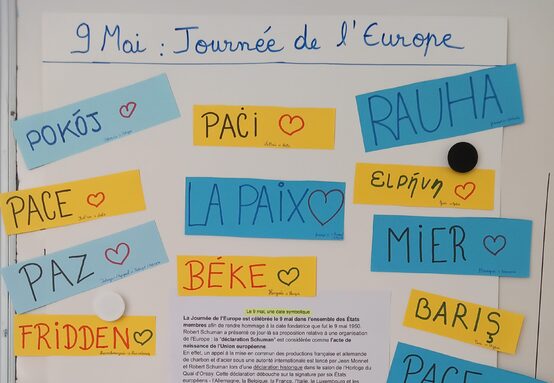 9 Mai : Journée de l'Europe
POKÓJ
PAĊI
RAUHA
PACE
LA PAIX
ΕΙΡΉΝΗ
PAZ
BÉKE
MIER
FRIDDEN
BARIŞ
PACE
Le 9 mai, une date symbolique
La Journée de l'Europe est célébrée le 9 mai dans l'ensemble des États
membres afin de rendre hommage à la date fondatrice que fut le 9 mai 1950.
Robert Schuman a présenté ce jour-là sa proposition relative à une organisation
de l'Europe : la "déclaration Schuman" est considérée comme l'acte de
naissance de l'Union européenne.
En effet, un appel à la mise en commun des productions française et allemande
de charbon et d'acier sous une autorité internationale est lancé par Jean Monnet
et Robert Schuman lors d'une déclaration historique dans le salon de l'Horloge du
Quai d'Orsay. Cette déclaration débouche sur la signature par six États
européens - l'Allemagne, la Belgique, la France, l'Italie, le Luxembourg et les